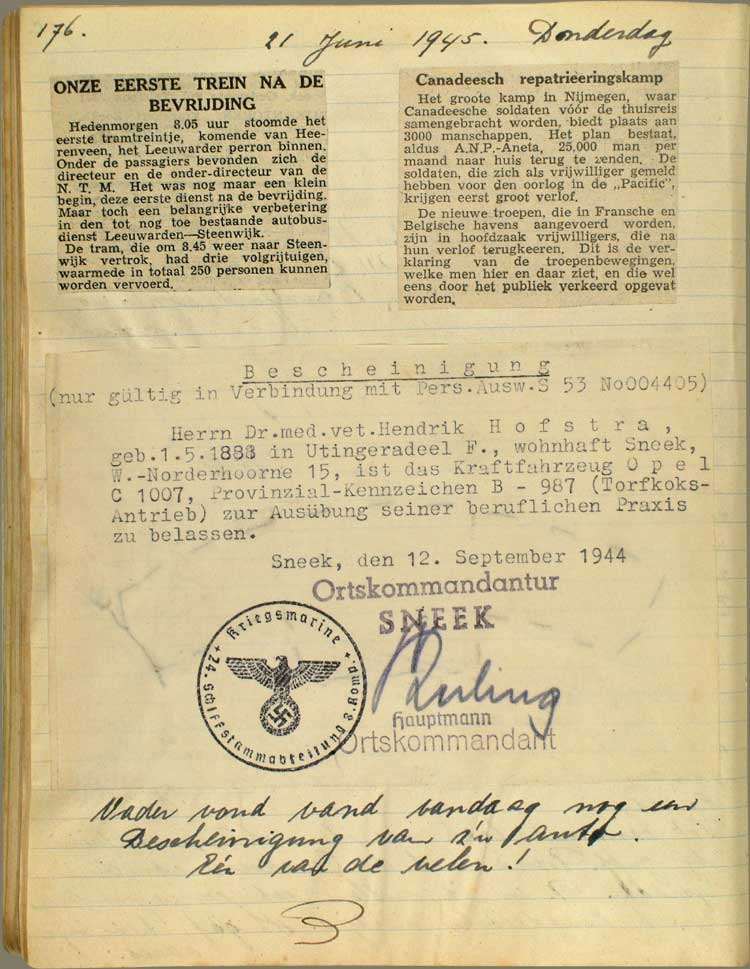 176.
21 Juni 1945. Donderdag
ONZE EERSTE TREIN NA DE
BEVRIJDING
Hedenmorgen 8.05 uur stoomde het
eerste tramtreintje, komende van Hee-
renveen, het Leeuwarder perron binnen.
Onder de passagiers bevonden zich de
directeur en de onder-directeur van de
N. T. M. Het was nog maar een klein
begin, deze eerste dienst na de bevrijding.
Maar toch een belangrijke verbetering
in den tot nog toe bestaande autobus-
dienst Leeuwarden—Steenwijk.
De tram, die om 8.45 weer naar Steen-
wijk vertrok, had drie volgrijtuigen,
waarmede in totaal 250 personen kunnen
worden vervoerd.
Canadeesch repatrieeringskamp
Het groote kamp in Nijmegen, waar
Canadeesche soldaten vóór de thuisreis
samengebracht worden, biedt plaats aan
3000 manschappen. Het plan bestaat,
aldus A.N.P.-Aneta, 25,000 man per
maand naar huis terug te zenden. De
soldaten, die zich als vrijwilliger gemeld
hebben voor den oorlog in de „Pacific”,
krijgen eerst groot verlof.
De nieuwe troepen, die in Fransche en
Belgische havens aangevoerd worden,
zijn in hoofdzaak vrijwilligers, die na
hun verlof terugkeeren. Dit is de ver-
klaring van de troepenbewegingen,
welke men hier en daar ziet, en die wel
eens door het publiek verkeerd opgevat
worden.
Bescheinigung
(nur gültig in Verbindung mit Pers.Ausw.S 53 No004405)
Herrn Dr.med.vet.Hendrik Hofstra,
geb.1.5.1888 in Utingeradeel F., wohnhaft Sneek,
W.-Norderhoorne 15, ist das Kraftfahrzeug Opel
C 1007, Provinzial-Kennzeichen B - 987 (Torfkoks-
Antrieb) zur Ausübung seiner beruflichen Praxis
zu belassen.
Sneek, den 12. September 1944
Ortskommandantur
SNEEK
Hauptmann
Ortskommandant
Kriegsmarine
24. Schiffstammabteilung
Vader vond vand vandaag nog een
Bescheinigung van z'n auto.
Eén van de velen!